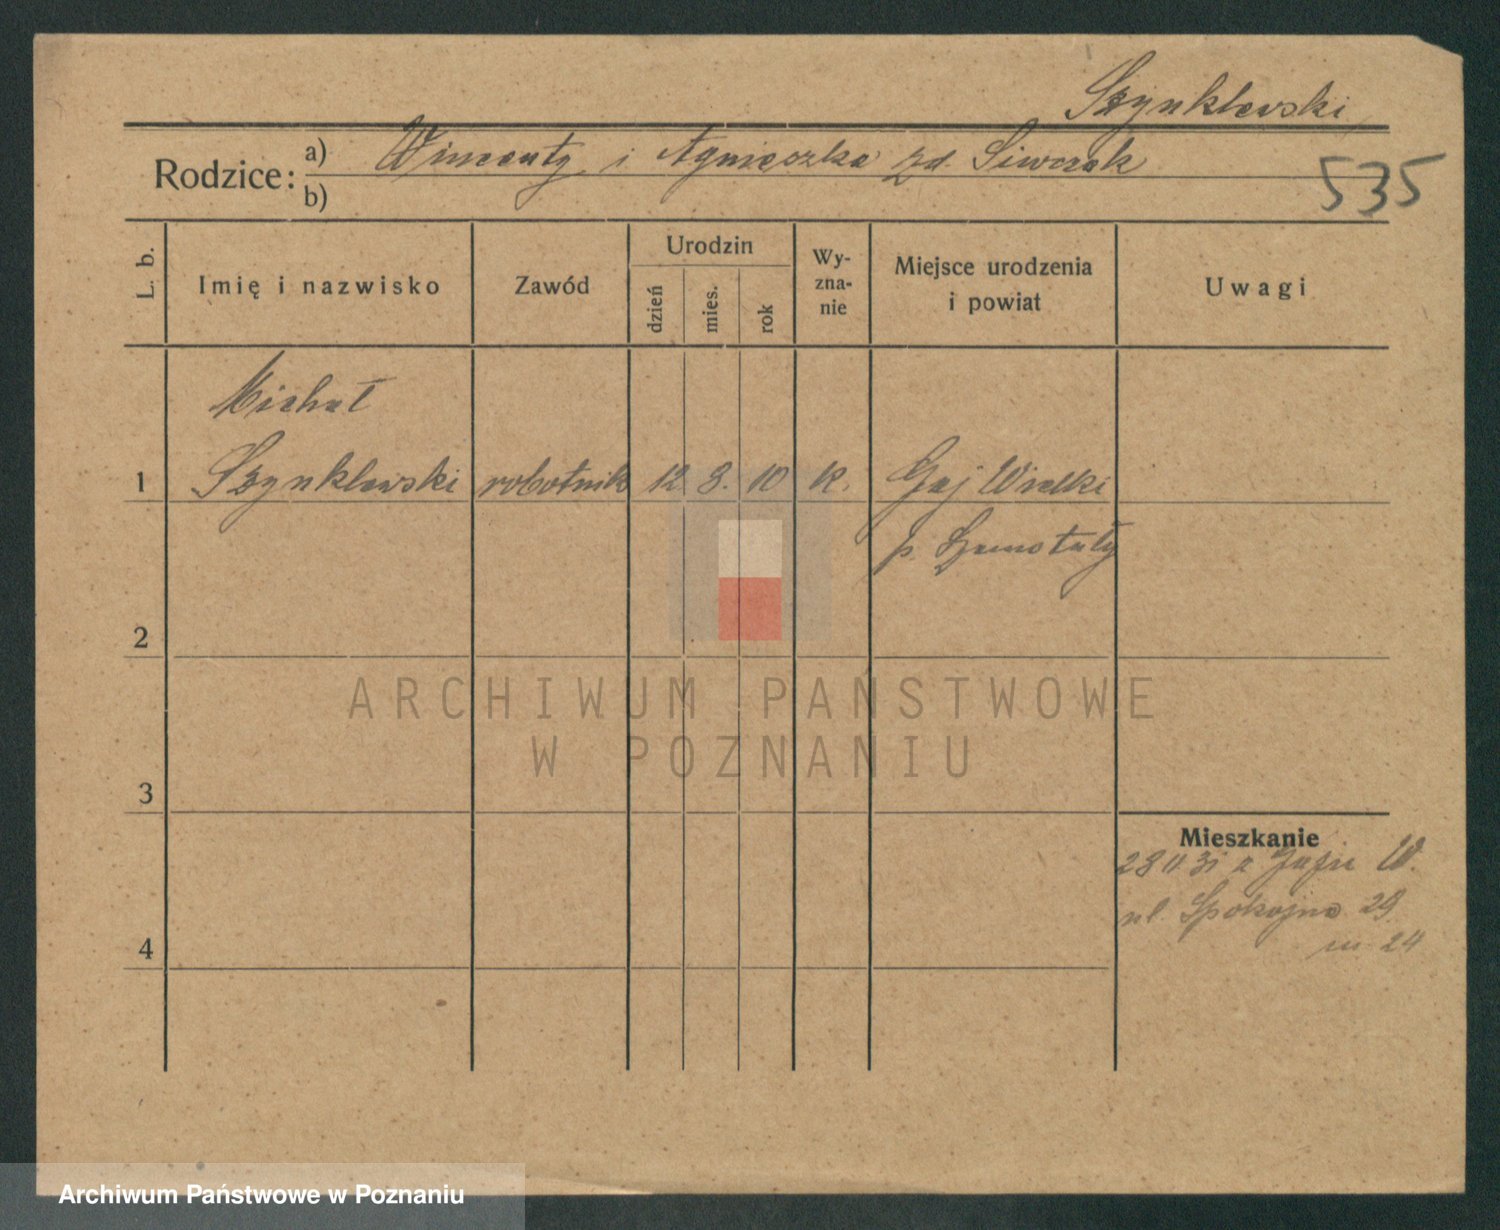 Szynklewski
Rodzice:
a) Wincenty i Agnieszka zd. Siwczak
b)
535
L. b.
Imię i nazwisko
Zawód
Urodzin
dzień
mies.
rok
Wy-
zna-
nie
Miejsce urodzenia
i powiat
Uwagi
Michał
1 Szynklewski robotnik 12 8. 10 k. Gaj Wielki
p. Szamotuły
2
3
4
Mieszkanie
28 II 31 z W.
ul. Spokojna 29
m 24
ARCHIWUM PAŃSTWOWE
W POZNANIU
Archiwum Państwowe w Poznaniu